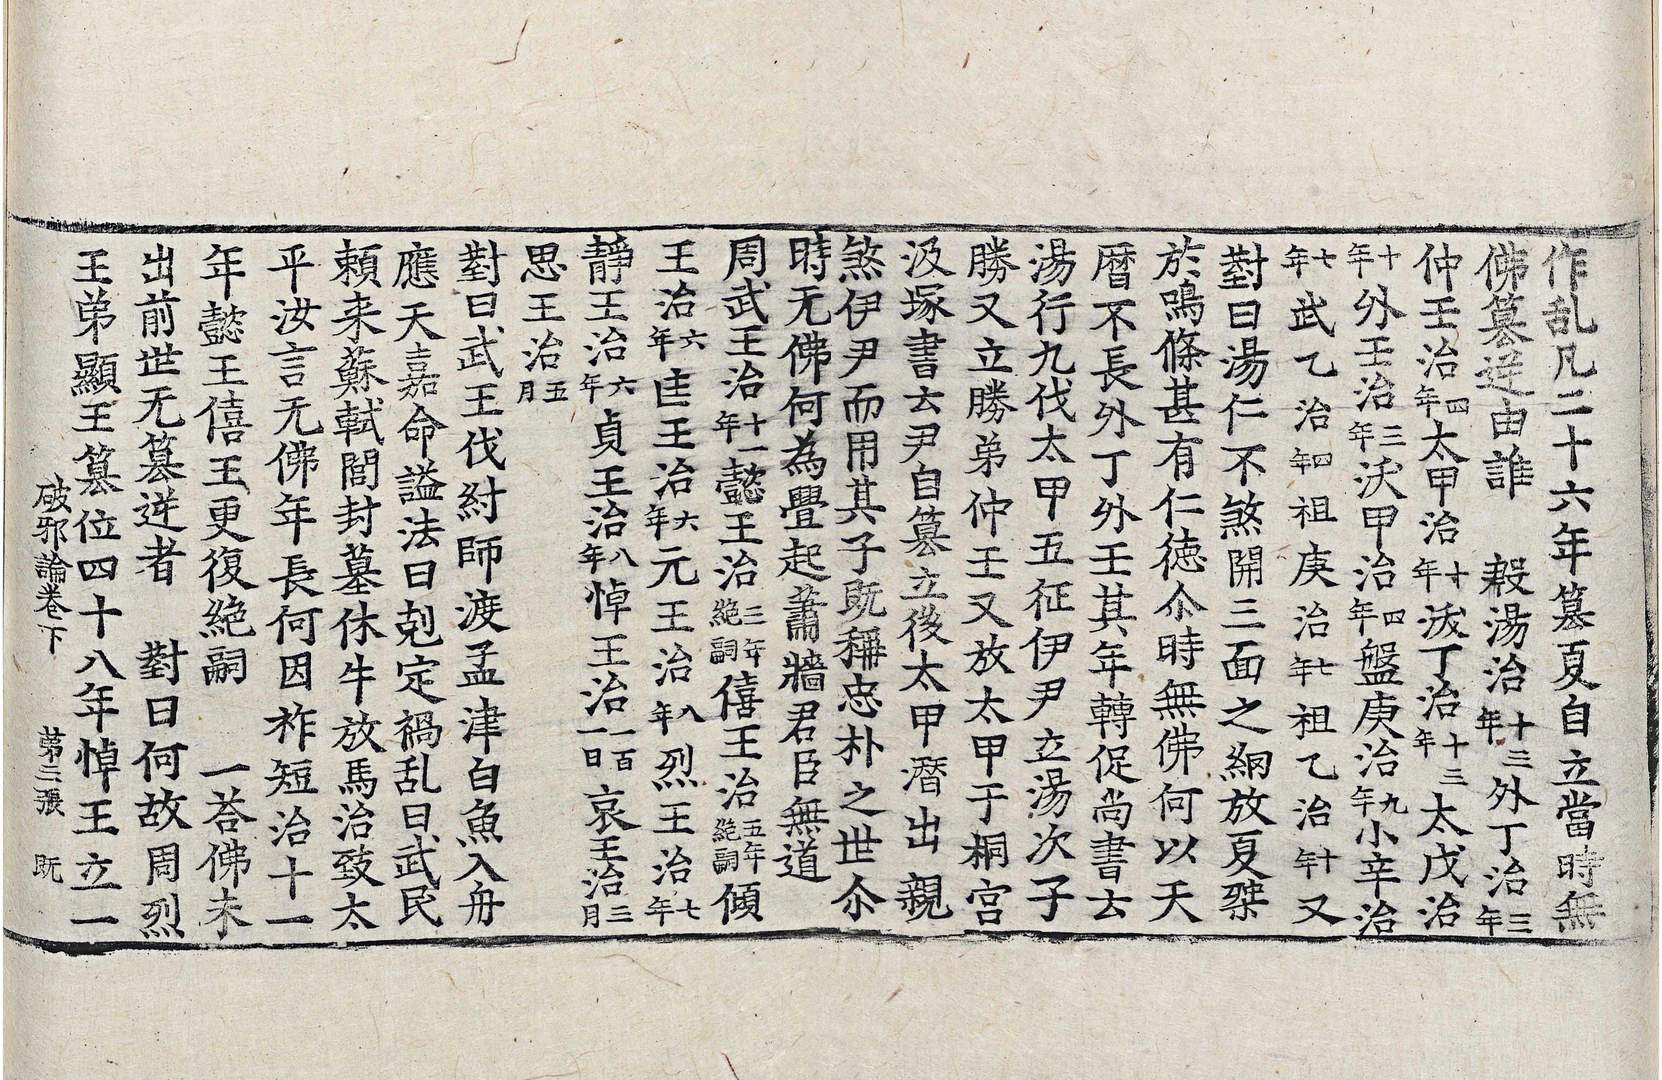 作乱凡二十六年篡夏自立當時無
佛篡逆由誰　殷湯治十三年外丁治三年
仲壬治四年太甲治十年沃丁治十三年太戊治
十年外壬治三年沃甲治四年盤庚治九年小辛治
七年武乙治四年祖庚治七年祖乙治十年又
對曰湯仁不煞開三面之網放夏桀
於鳴條甚有仁德尒時無佛何以天
曆不長外丁外壬其年轉促尚書云
湯行九伐太甲五征伊尹立湯次子
勝又立勝弟仲壬又放太甲于桐宮
汲塚書云尹自篡立後太甲潛出親
煞伊尹而用其子旣稱忠朴之世尒
時无佛何為疊起蕭牆君臣無道
周武王治十一年懿王治三年絕嗣僖王治五年絕嗣傾
王治六年匡王治六年元王治八年烈王治七年
靜王治六年貞王治八年悼王治一百一日哀王治三月
思王治五月
對曰武王伐紂師渡孟津白魚入舟
應天嘉命謚法曰剋定禍乱曰武民
頼来蘇軾閭封墓休牛放馬治致太
平汝言无佛年長何因祚短治十一
年懿王僖王更復絕嗣　一荅佛未
出前世无篡逆者　對曰何故周烈
王弟顯王篡位四十八年悼王立一
破邪論卷下　第三張　旣